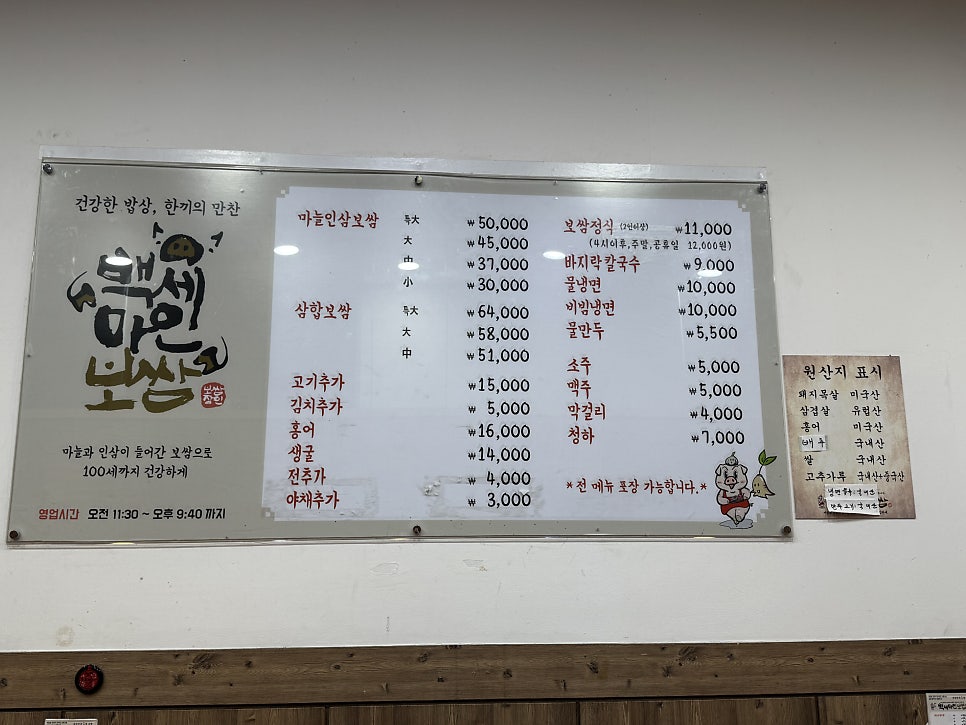 건강한 밥상, 한끼의 만찬
백세
마인
보쌈
마늘과 인삼이 들어간 보쌈으로
100세까지 건강하게
영업시간 오전 11:30 ~ 오후 9:40 까지
마늘인삼보쌈 특大 ₩50,000
大 ₩45,000
中 ₩37,000
小 ₩30,000
삼합보쌈 특大 ₩64,000
大 ₩58,000
中 ₩51,000
고기추가 ₩15,000
김치추가 ₩5,000
홍어 ₩16,000
생굴 ₩14,000
전추가 ₩4,000
야채추가 ₩3,000
보쌈정식 (2인이상) ₩11,000
(4시이후,주말,공휴일 12,000원)
바지락칼국수 ₩9,000
물냉면 ₩10,000
비빔냉면 ₩10,000
물만두 ₩5,500
소주 ₩5,000
맥주 ₩5,000
막걸리 ₩4,000
청하 ₩7,000
*전 메뉴 포장 가능합니다.*
원산지 표시
돼지목살 미국산
삼겹살 유럽산
홍어 미국산
배추 국내산
쌀 국내산
고추가루 국내산+중국산